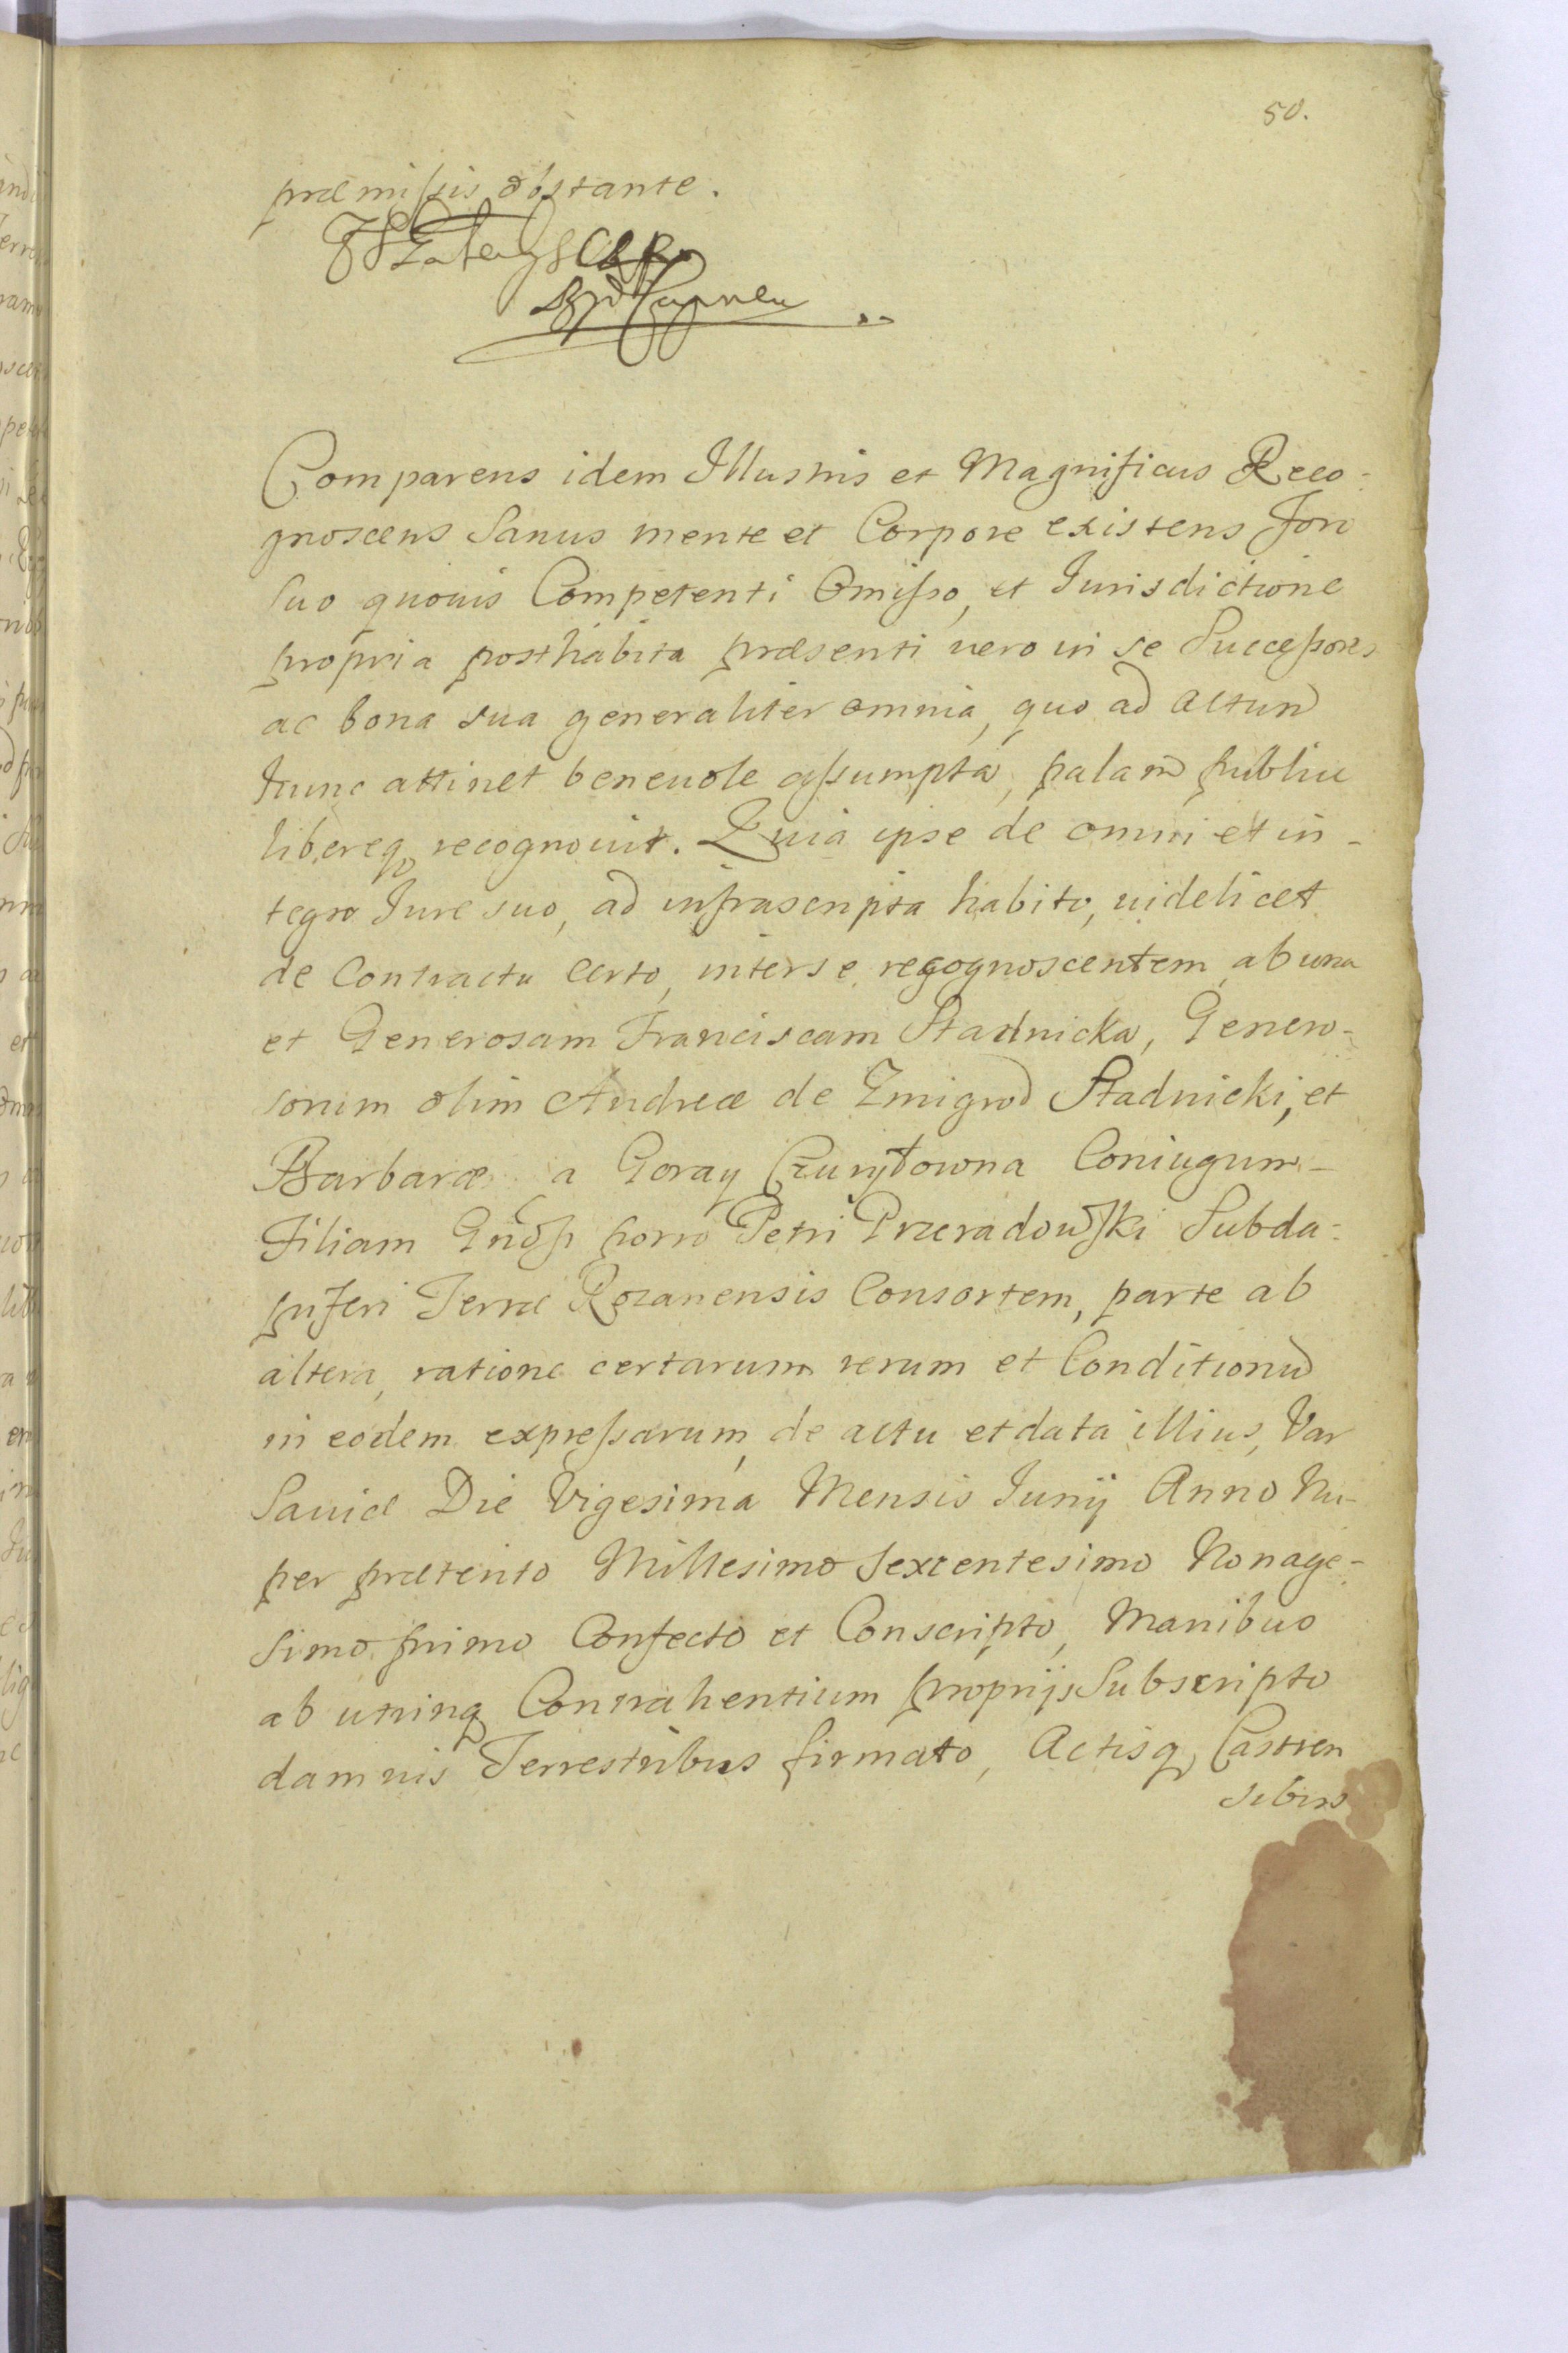 50.
præmissis obstante.
Comparens idem Illustris et Magnificus Reco-
gnoscens Sanus mente et Corpore existens Foro
suo quouis Competenti Omisso, et Jurisdictione
propria posthabita præsenti uero in se Successores
ac bona sua generaliter omnia, quo ad actum
hunc attinet beneuole assumpta, palam publice
libereq recognouit. Quia ipse de omni et in-
tegro Jure suo, ad infrascripta habito, uidelicet
de Contractu Certo, inter se recognoscentem ab una
et Generosam Franciscam Stadnicka, Genero-
sorum olim Andreæ de Zmigrod Stadnicki, et
Barbaræ a Goray Coniugum-
Filiam porro Petri Przeradowski Subda-
piferi Terræ Rozanensis Consortem, parte ab
altera, ratione certarum rerum et Conditionu
in eodem expressarum, de actu et data illius, Var
Sauiæ Die Vigesima Mensis Junij Anno Nu-
per præterito Millesimo Sexcentesimo Nonage-
simo primo Confecto et Conscripto, Manibus
ab utrinq Contrahentium proprijs Subscripto
damnis Terrestribus firmato, Actisq Castren
sibus